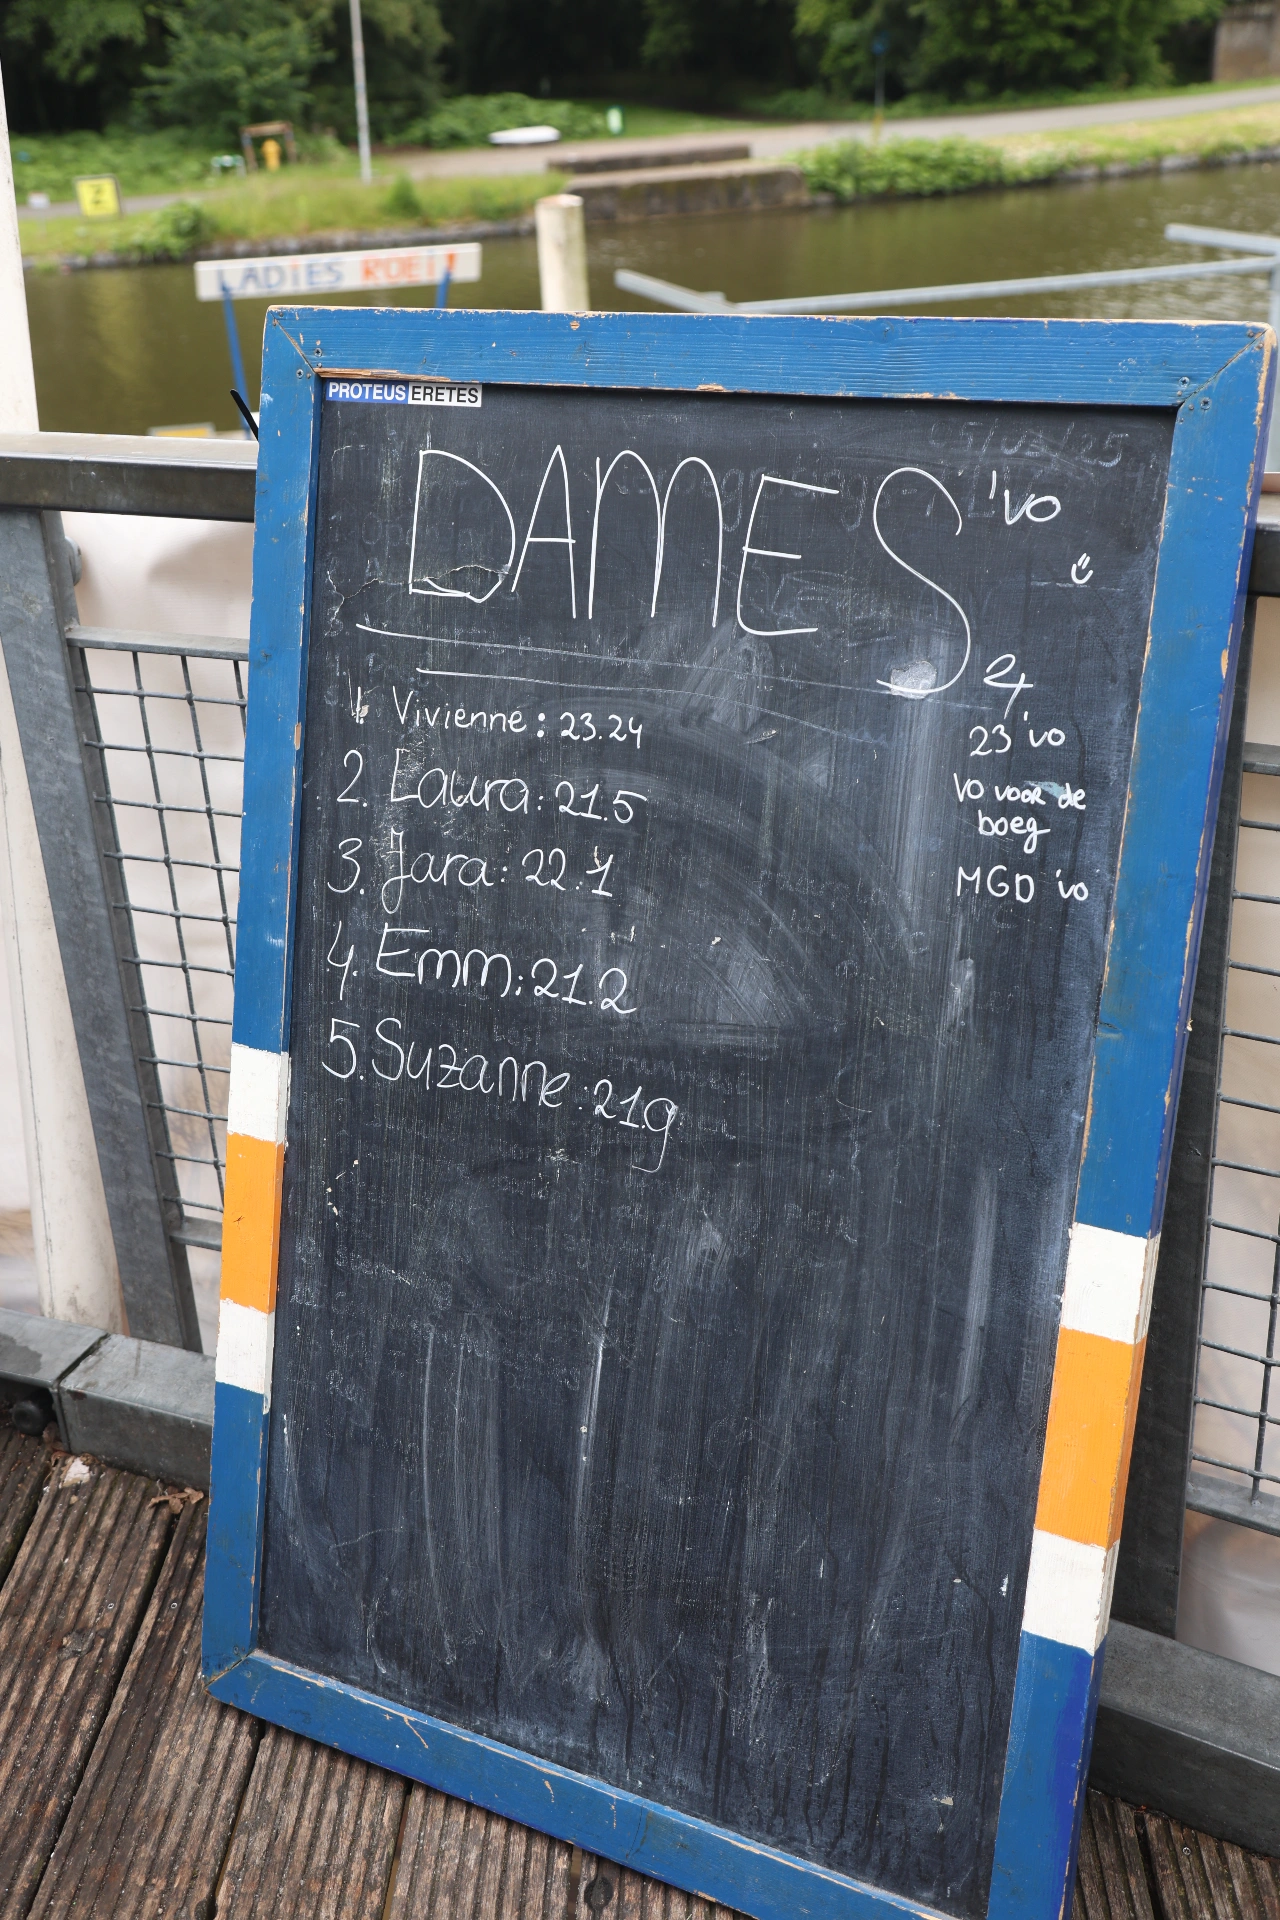 LADIES ROEI!
PROTEUS ERETES
05/03/25
DAMES 'vo
1. Vivienne: 23.24
2. Laura: 21.5
3. Jara: 22.1
4. Emm: 21.2
5. Suzanne: 21.9
24
23 'vo
vo voor de
boeg
MGD 'vo